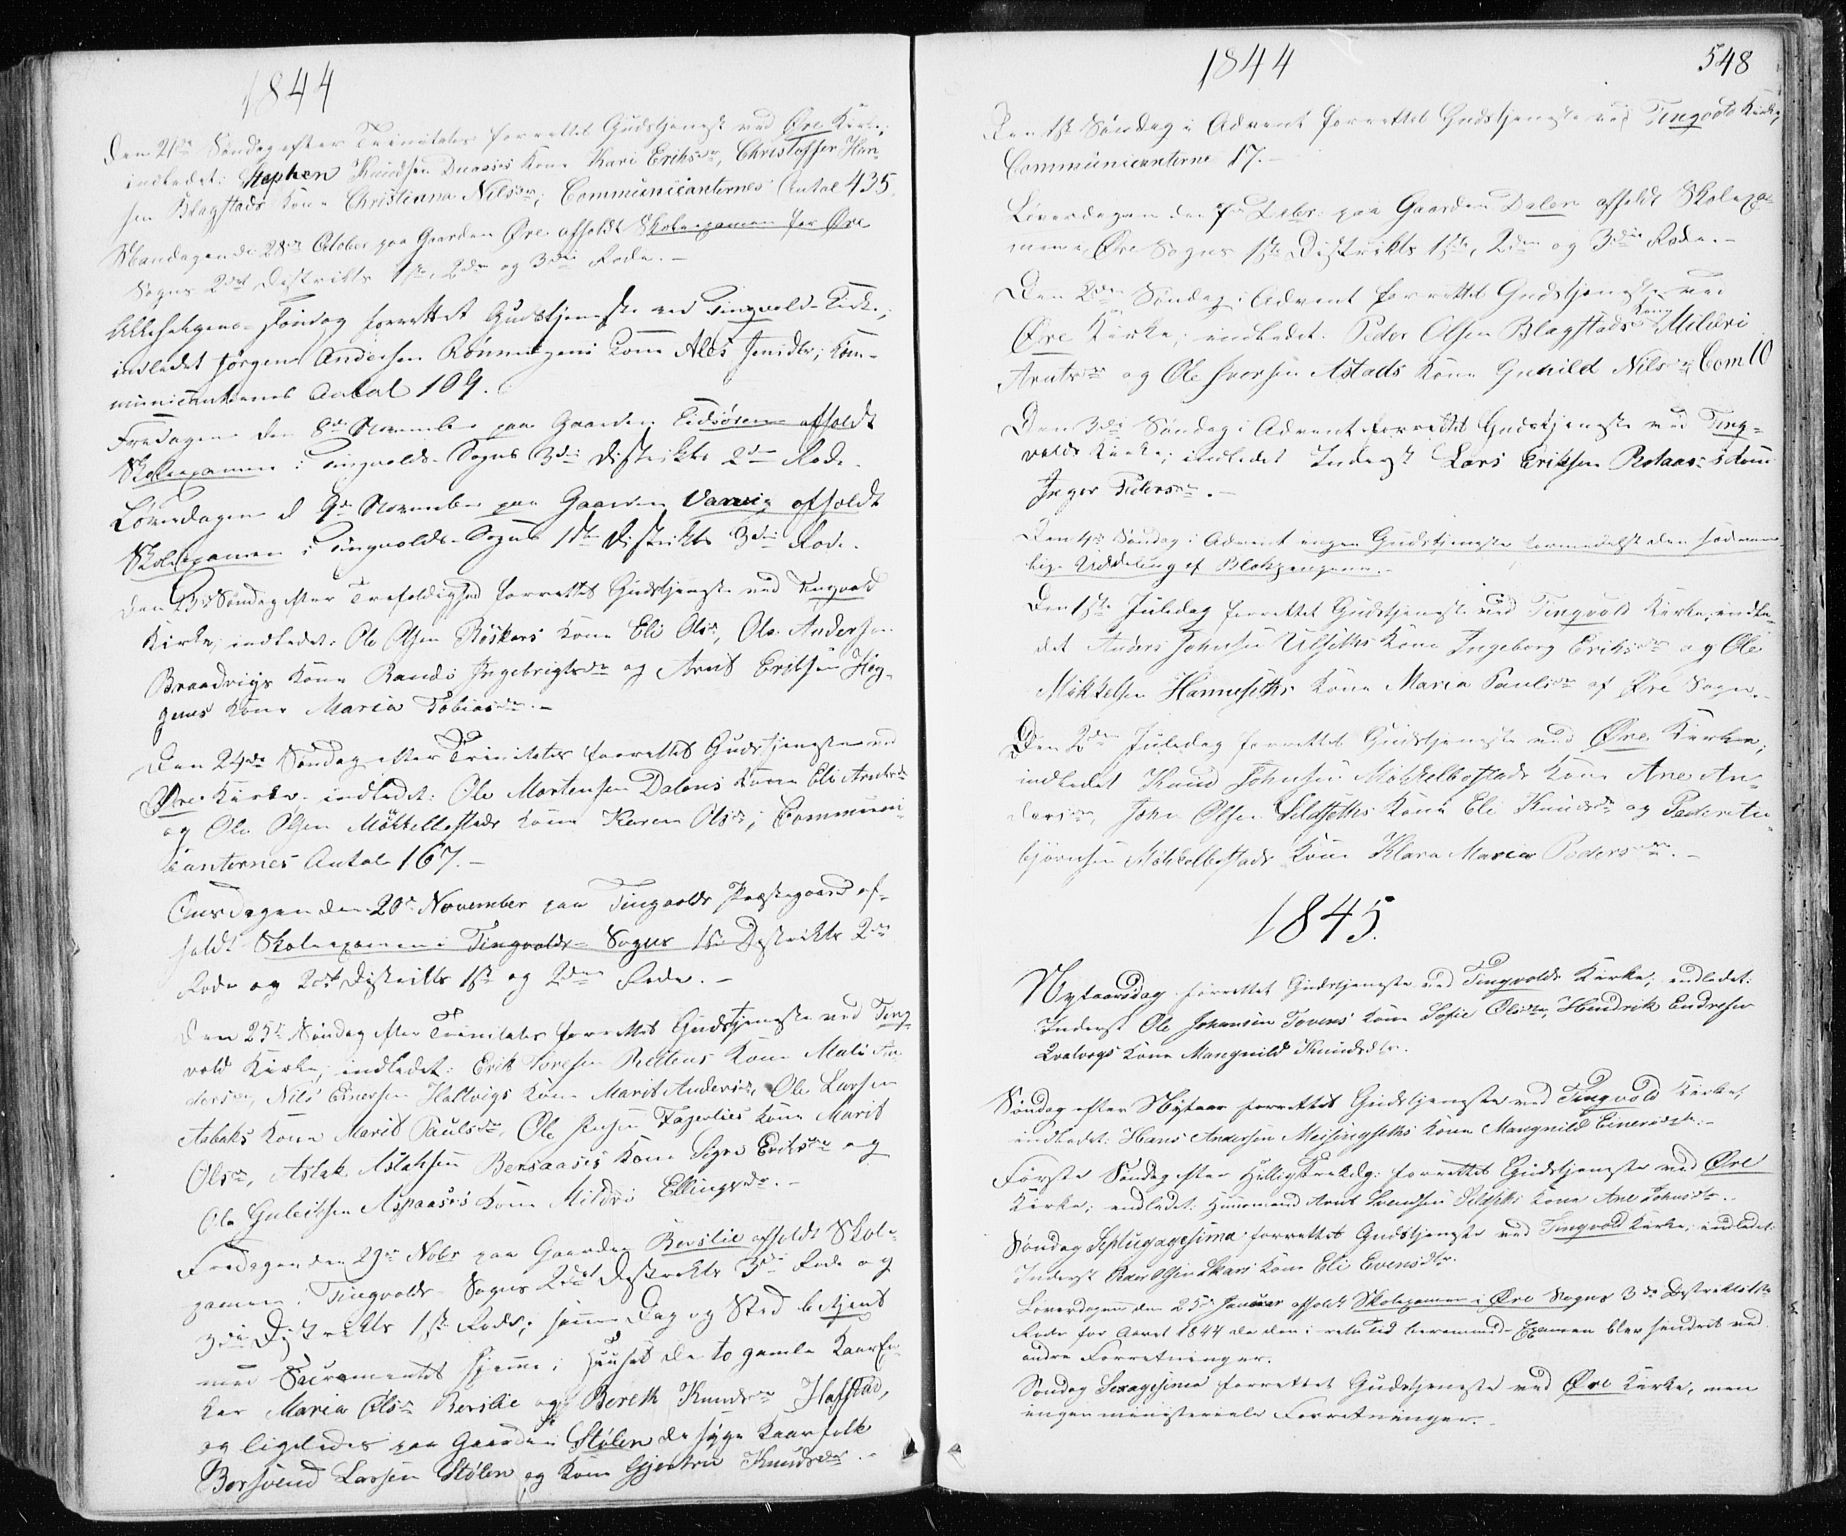 1844
Den 21de Søndag efter Trinitatis forrettet Gudstjeneste ved Øre Kirke;
indledet: Stephen Knudsen Duaasis Kone Kari Eriksdr, Christoffer Han-
sen Blagstads Kone Christianna Nilsdr; Communicanternes Antal 435.
Mandagen d. 28de October paa Gaarden Øre afholdt Skoleexamen for Øre
Sogns 2det Distrikts 1ste, 2den og 3die Rode. –
Allehelgens-Søndag forrettet Gudstjeneste ved Tingvold Kirke;
indledet Jørgen Andersen Rønningens Kone Ales Jensdtr; Com-
municanternes Antal 109.
Fredagen den 8de November paa Gaarden Eidsøren afholdt
Skoleexamen i Tingvolds-Sogns 3die Distrikts 2den Rode.
Løverdagen d 9de November paa Gaarden Vaagvig afholdt
Skoleexamen i Tingvolds-Sogns 1ste Distrikts 3die Rode.
Den 23de Søndag efter Trefoldighed forrettet Gudstjeneste ved Tingvold
Kirke, indledet: Ole Olsen Røskars Kone Eli Olsdr, Ole Andersen
Braadvigs Kone Randi Ingebrigtsdr og Arnt Eriksen Høg-
gens Kone Maria Tobiasdr. –
Den 24de Søndag efter Trinitatis forrettet Gudstjeneste ved
Øre Kirke, indledet: Ole Mortensen Dalens Kone Eli Arntsdr
og Ole Olsen Møkkelbostads Kone Karen Olsdr; Communi-
canternes Antal 167. –
Onsdagen den 20de November paa Tingvolds Præstegaard af-
holdt Skoleexamen i Tingvolds-Sogns 1ste Distrikts 2den
Rode og 2det Distrikts 1ste og 2den Rode. –
Den 25de Søndag efter Trinitatis forrettet Gudstjeneste ved Ting-
vold Kirke; indledet: Erik Iversen Kone Mali An-
dersdr, Nils Einersen Hallvigs Kone Marit Andersdr, Ole Larsen
Aabaks Kone Marit Paulsdr, Ole Fagerlies Kone Marit
Olsdr, Aslak Aslaksen Bersaases Kone Sigri Eriksdr og
Ole Guleiksen Aspaases Kone Mildri Ellingsdr. –
Fredagen den 29de Novbr paa Gaarden Beverlie afholdt Skole-
examen i Tingvolds-Sogns 2det Distrikts 3die Rode og
3die Distrikts 1ste Rode; samme Dag og Sted betjent
med Sacramentet hjemme i Huuset de to gamle Kaarko-
ner Maria Olsdr Beverlie og Bereth Knudsdr Hafstad,
og ligeledes paa Gaarden Stølen de syge Kaarfolk
Borsveind Larsen Stølen og Kone Gjertru Knudsdr. –
1844
548
Den 1ste Søndag i Advent forrettet Gudstjeneste ved Tingvold Kirke;
Communicanterne 17. –
Løverdagen den 7de Decbr. paa Gaarden Dalen afholdt Skoleexa-
men i Øre Sogns 1ste Distrikts 1ste, 2den og 3die Rode. –
Den 2den Søndag i Advent forrettet Gudstjeneste ved
Øre Kirke, indledet: Peder Olsen Blagstads Kone Mildri
Arntsdr og Ole Iversen Astads Kone Gunild Nilsdr Com 10
Den 3die Søndag i Advent forrettet Gudstjeneste ved Ting-
volds Kirke; indledet Inderst Lars Eriksen Kone
Inger Pedersdr. –
Den 4de Søndag i Advent ingen Gudstjeneste formedelst den sædvan-
lige Uddeling af .
Den 1ste Juledag forrettet Gudstjeneste ved Tingvold Kirke, indle-
det Anders Johnsen Ulseths Kone Ingeborg Eriksdr og Ole
Mikkelsen Hanneseths Kone Maria Paulsdr af Øre Sogn. –
Den 2den Juledag forrettet Gudstjeneste ved Øre Kirke;
indledet Knud Johnsen Møkkelbostads Kone Ane An-
dersdr, John Olsen Sildseths Kone Eli Knudsdr og Peder Tor-
bjørnsen Møkkelbostads Kone Klara Maria Pedersdr. –
1845.
Nytaarsdag forrettet Gudstjeneste ved Tingvolds Kirke, indledet:
Inderst Ole Johansen Torens Kone Sofie Olsdr, Hendrik Endresen
Qvalvogs Kone Mangnild Knudsdtr.
Søndag efter Nytaar forrettet Gudstjeneste ved Tingvold Kirke,
indledet: Hans Andersen Meisingseths Kone Mangnild Einersdtr. –
Første Søndag efter Helligtrekdg: forrettet Gudstjeneste ved Øre
Kirke; indledet: Huusmand Arnt Svendsen Sildseths Kone Ane Johnsdtr. –
Søndag Septuagesima forrettet Gudstjeneste ved Tingvold Kirke, indledet:
Inderst Olsen Skars Kone Eli Evensdtr.
Løverdagen den 25de Januar afholdt Skoleexamen i Øre Sogns 3die Distrikts 1ste
Rode for Aaret 1844 da den i rette Tid berammede Examen blev hindret ved
andre Forretninger.
Søndag Sexagesima forrettet Gudstjeneste ved Øre Kirke, men
ingen ministerielle Forretninger. –